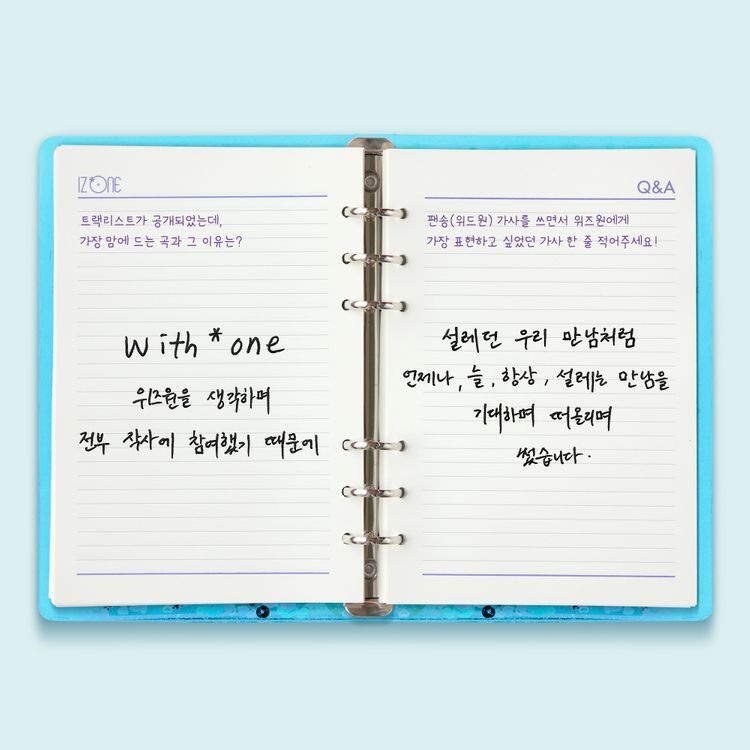 IZ*ONE
트랙리스트가 공개되었는데,
가장 맘에 드는 곡과 그 이유는?
With*one
위즈원을 생각하며
전부 작사에 참여했기 때문에
Q&A
팬송(위드원) 가사를 쓰면서 위즈원에게
가장 표현하고 싶었던 가사 한 줄 적어주세요!
설레던 우리 만남처럼
언제나, 늘, 항상, 설레는 만남을
기대하며 떠올리며
썼습니다.